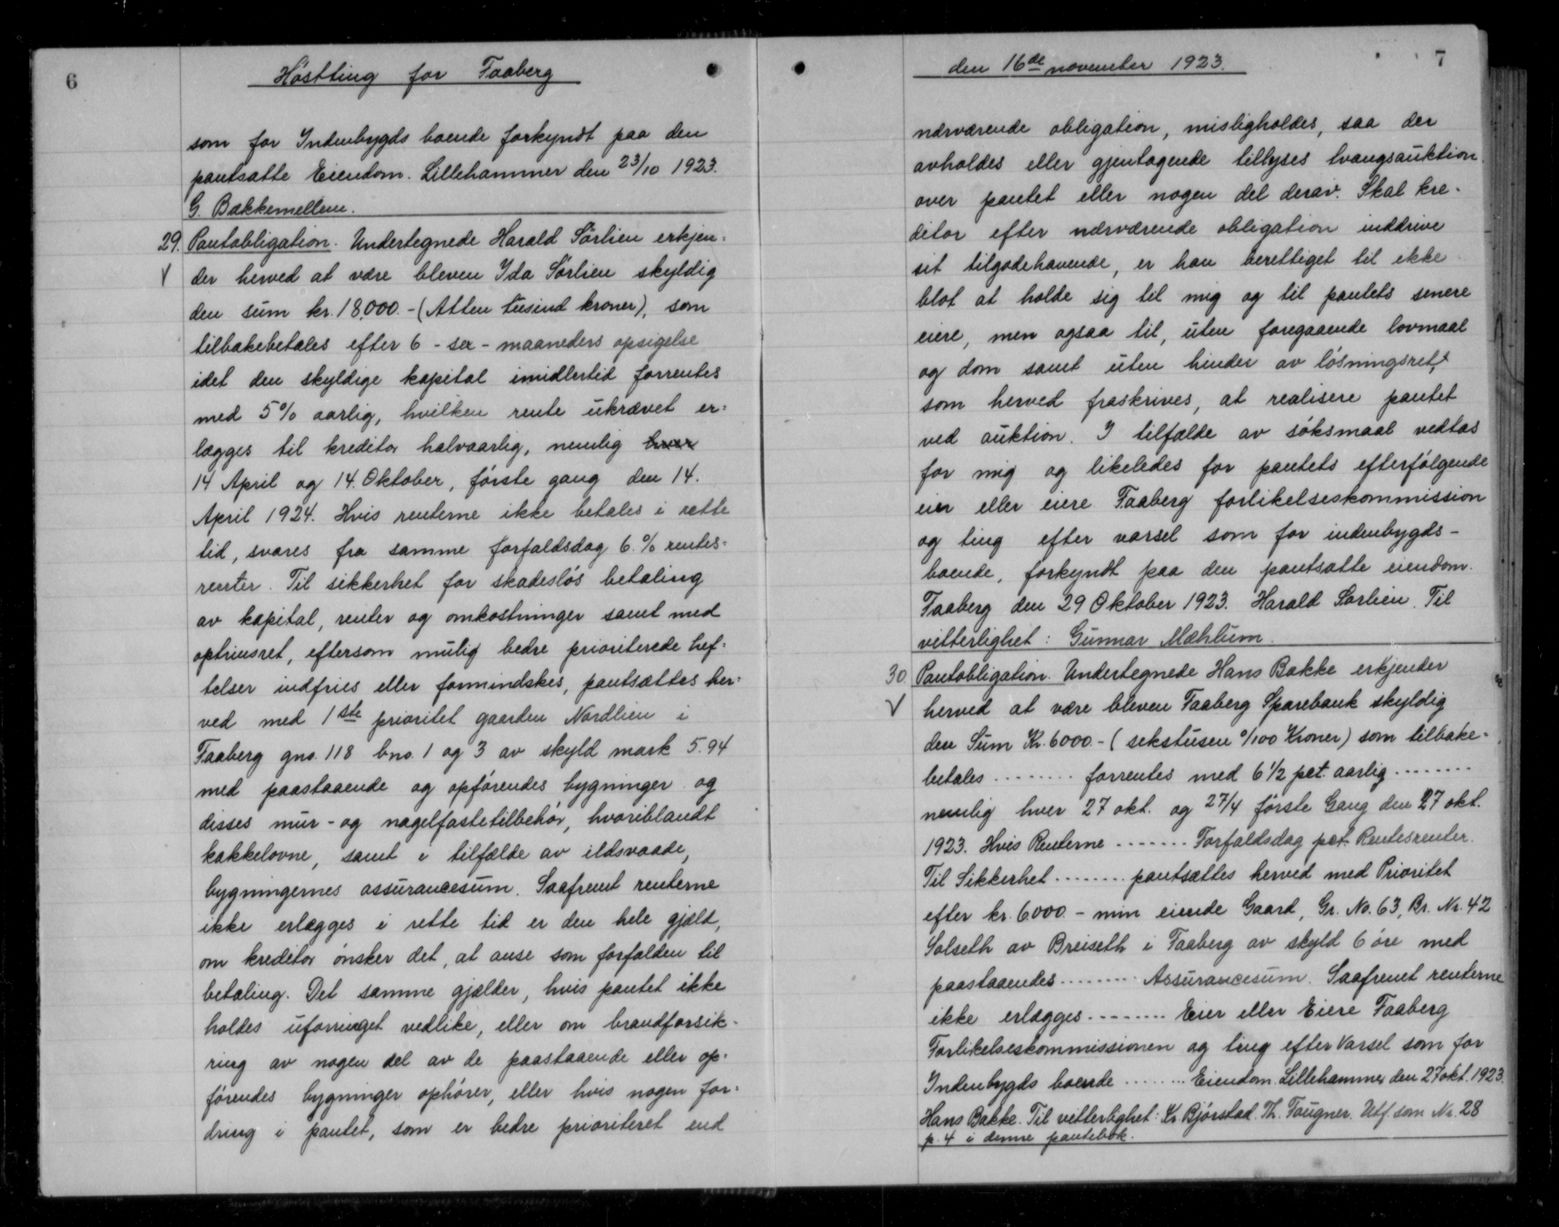 6
Høstting for Faaberg
som for Indenbygds boende forkyndt paa den
pantsatte Eiendom. Lillehammer den 23/10 1923.
G. Bakkemellem.
29. Pantobligation. Undertegnede Harald Sørlien erkjen=
V der herved at være bleven Ida Sørlien skyldig
den sum kr. 18,000.- (Atten tusind kroner), som
tilbakebetales efter 6 - sex - maaneders opsigelse
idet den skyldige kapital imidlertid forrentes
med 5% aarlig, hvilken rente ukrævet er=
lægges til kreditor halvaarlig, nemlig hver
14 April og 14. Oktober, første gang den 14.
April 1924. Hvis renterne ikke betales i rette
tid, svares fra samme forfaldsdag 6.% rentes=
renter. Til sikkerhet for skadesløs betaling
av kapital, renter og omkostninger samt med
optrinsret, eftersom mulig bedre prioriterede hef=
telser indfries eller formindskes, pantsættes her=
ved med 1ste prioritet gaarden Nordlien i
Faaberg gno. 118 bno. 1 og 3 av skyld mark 5.94
med paastaaende og opførendes bygninger og
disses mur- og nagelfastetilbehør, hvoriblandt
kakkelovne, samt i tilfælde av ildsvaade,
bygningernes assurancesum. Saafremt renterne
ikke erlægges i rette tid er den hele gjæld,
om kreditor ønsker det, at anse som forfalden til
betaling. Det samme gjælder, hvis pantet ikke
holdes uforringet vedlike, eller om brandforsik-
ring av nogen del av de paastaaende eller op-
førendes bygninger ophører, eller hvis nogen for=
dring i pantet, som er bedre prioriteret end
den 16de november 1923.
7
nærværende obligation, misligholdes, saa der
avholdes eller gjentagende tillyses tvangsauktion
over pantet eller nogen del derav. Skal kre-
ditor efter nærværende obligation inddrive
sit tilgodehavende, er han berettiget til ikke
blot at holde sig til mig og til pantets senere
eiere, men ogsaa til, uten foregaaende lovmaal
og dom samt uten hinder av løsningsret,
som herved fraskrives, at realisere pantet
ved auktion. I tilfælde av søksmaal vedtas
for mig og likeledes for pantets efterfølgende
eier eller eiere Faaberg forlikelseskommission
og ting efter varsel som for indenbygds-
boende, forkyndt paa den pantsatte eiendom.
Faaberg den 29 Oktober 1923. Harald Sørlien. Til
vitterlighet: Gunnar Mæhlum.
30 Pantobligation. Undertegnede Hans Bakke erkjender
V herved at være bleven Faaberg Sparebank skyldig
den Sum Kr. 6000.- (sekstusen 0/100 Kroner) som tilbake-
betales ........ forrentes med 6 1/2 pct. aarlig ........
nemlig hver 27 okt. og 27/4 første Gang den 27 okt.
1923. Hvis Renterne ....... Forfaldsdag pct. Rentesrenter.
Til Sikkerhet ........ pantsættes herved med Prioritet
efter kr. 6000.- min eiende Gaard, Gr. No. 63, Br. Nr. 42
Solseth av Breiseth i Faaberg av skyld 6 øre med
paastaaendes ........ Assurancesum. Saafremt renterne
ikke erlægges ........ Eier eller Eiere Faaberg
Forlikelseskommissionen og ting efter Varsel som for
Indenbygds boende ........ Eiendom. Lillehammer den 27 okt. 1923.
Hans Bakke. Til vitterlighet: Kr. Bjørstad. Th. Fougner. Utf. som Nr. 28
p. 4 i denne pantebok.